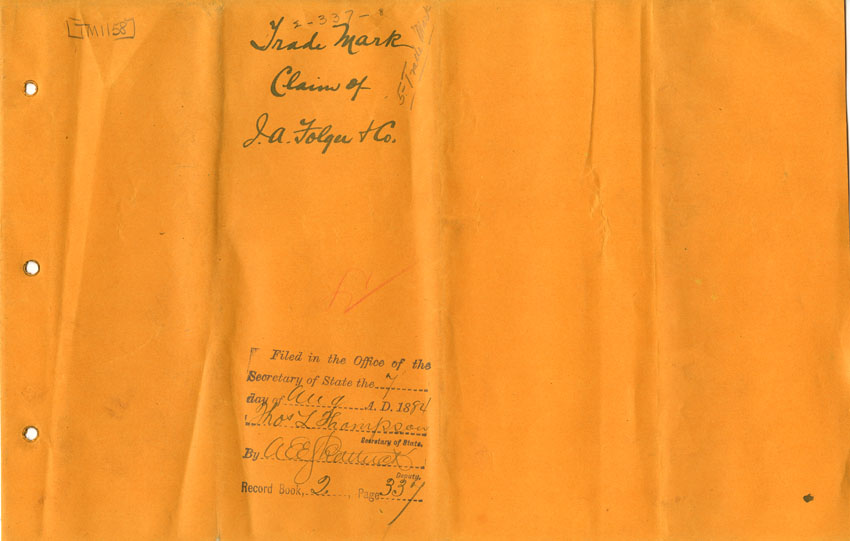 TM1158
2-337-
Trade Mark
Claim of
J. A. Folger & Co.
Trade Mark
Filed in the Office of the
Secretary of State the 7
day of Aug A. D. 1884
Thos L Thompson
Secretary of State.
By A E
Deputy.
Record Book, 2, Page 337